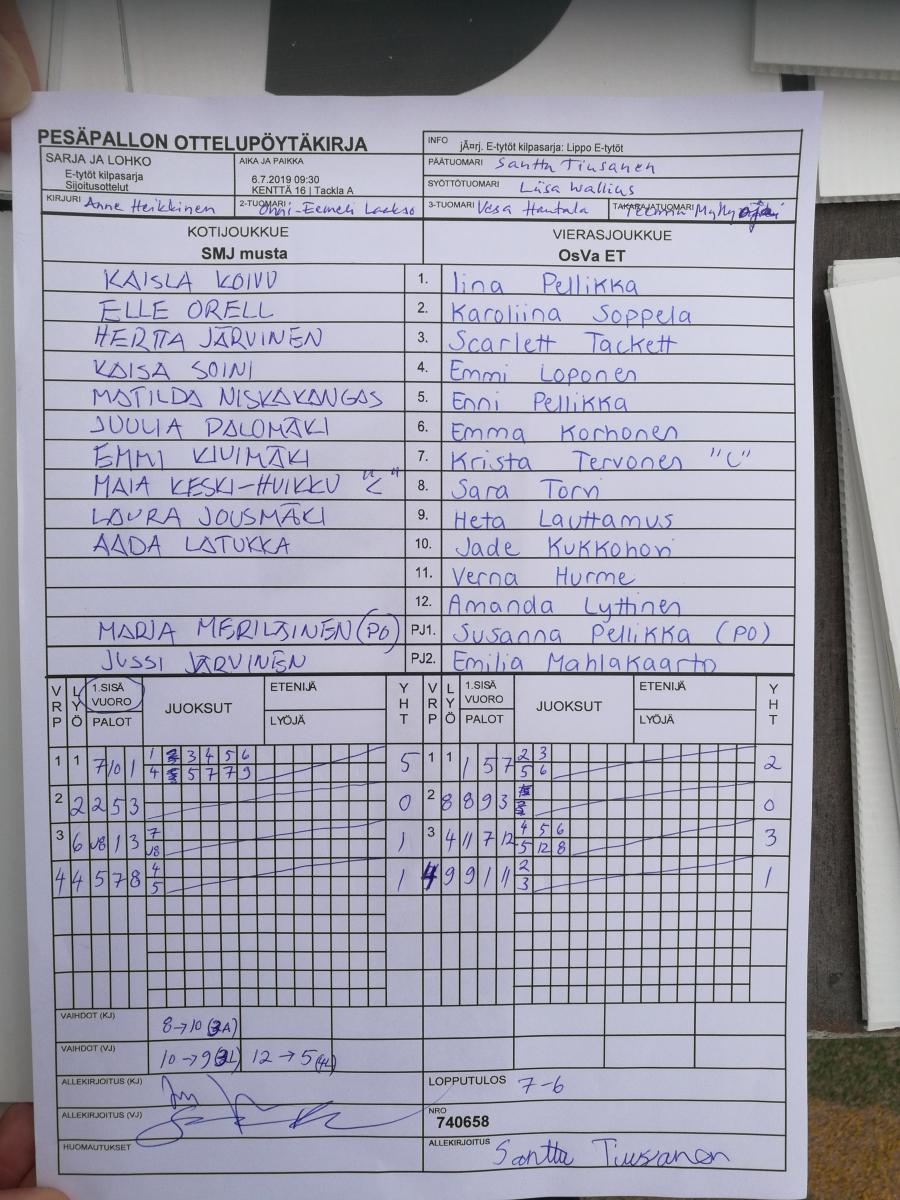 PESÄPALLON OTTELUPÖYTÄKIRJA
INFO jÃ¤rj. E-tytöt kilpasarja: Lippo E-tytöt
SARJA JA LOHKO
E-tytöt kilpasarja
Sijoitusottelut
AIKA JA PAIKKA
6.7.2019 09:30
KENTTÄ 16 | Tackla A
PÄÄTUOMARI Santta Tiusanen
SYÖTTÖTUOMARI Liisa Wallius
KIRJURI Anne Heikkinen
2-TUOMARI Onni-Eemeli Laakso
3-TUOMARI Vesa Hautala
TAKARAJATUOMARI
KOTIJOUKKUE
SMJ musta
VIERASJOUKKUE
OsVa ET
KAISLA KOIVU 1. Iina Pellikka
ELLE ORELL 2. Karoliina Soppela
HERTTA JÄRVINEN 3. Scarlett Tackett
KAISA SOINI 4. Emmi Loponen
MATILDA NISKAKANGAS 5. Enni Pellikka
JUULIA PALOMÄKI 6. Emma Korhonen
EMMI KIVIMÄKI 7. Krista Tervonen "C"
MAIA KESKI-HUIKKU "C" 8. Sara Torvi
LAURA JOUSMÄKI 9. Heta Lauttamus
AADA LATUKKA 10. Jade Kukkohovi
11. Verna Hurme
12. Amanda Lyttinen
MARJA MERILÄINEN (PO) PJ1. Susanna Pellikka (PO)
JUSSI JÄRVINEN PJ2. Emilia Mahlakaarto
VRP LYÖ 1.SISÄ VUORO PALOT JUOKSUT ETENIJÄ LYÖJÄ YHT VRP LYÖ 1.SISÄ VUORO PALOT JUOKSUT ETENIJÄ LYÖJÄ YHT
1 1 7 10 1 5 1 1 1 5 7 2
1 2 3 4 5 6 2 3
4 5 7 7 9 5 6
2 2 2 5 3 0 2 8 8 9 3 0
3 6 8 1 3 1 3 4 11 7 12 3
7 4 5 6
8 5 12 8
4 4 5 7 8 1 4 9 9 1 11 1
4 2
5 3
VAIHDOT (KJ) 8→10 (3A)
VAIHDOT (VJ) 10→9 (3L) 12→5 (4L)
ALLEKIRJOITUS (KJ)
LOPPUTULOS 7-6
ALLEKIRJOITUS (VJ)
NRO
740658
HUOMAUTUKSET
ALLEKIRJOITUS Santta Tiusanen